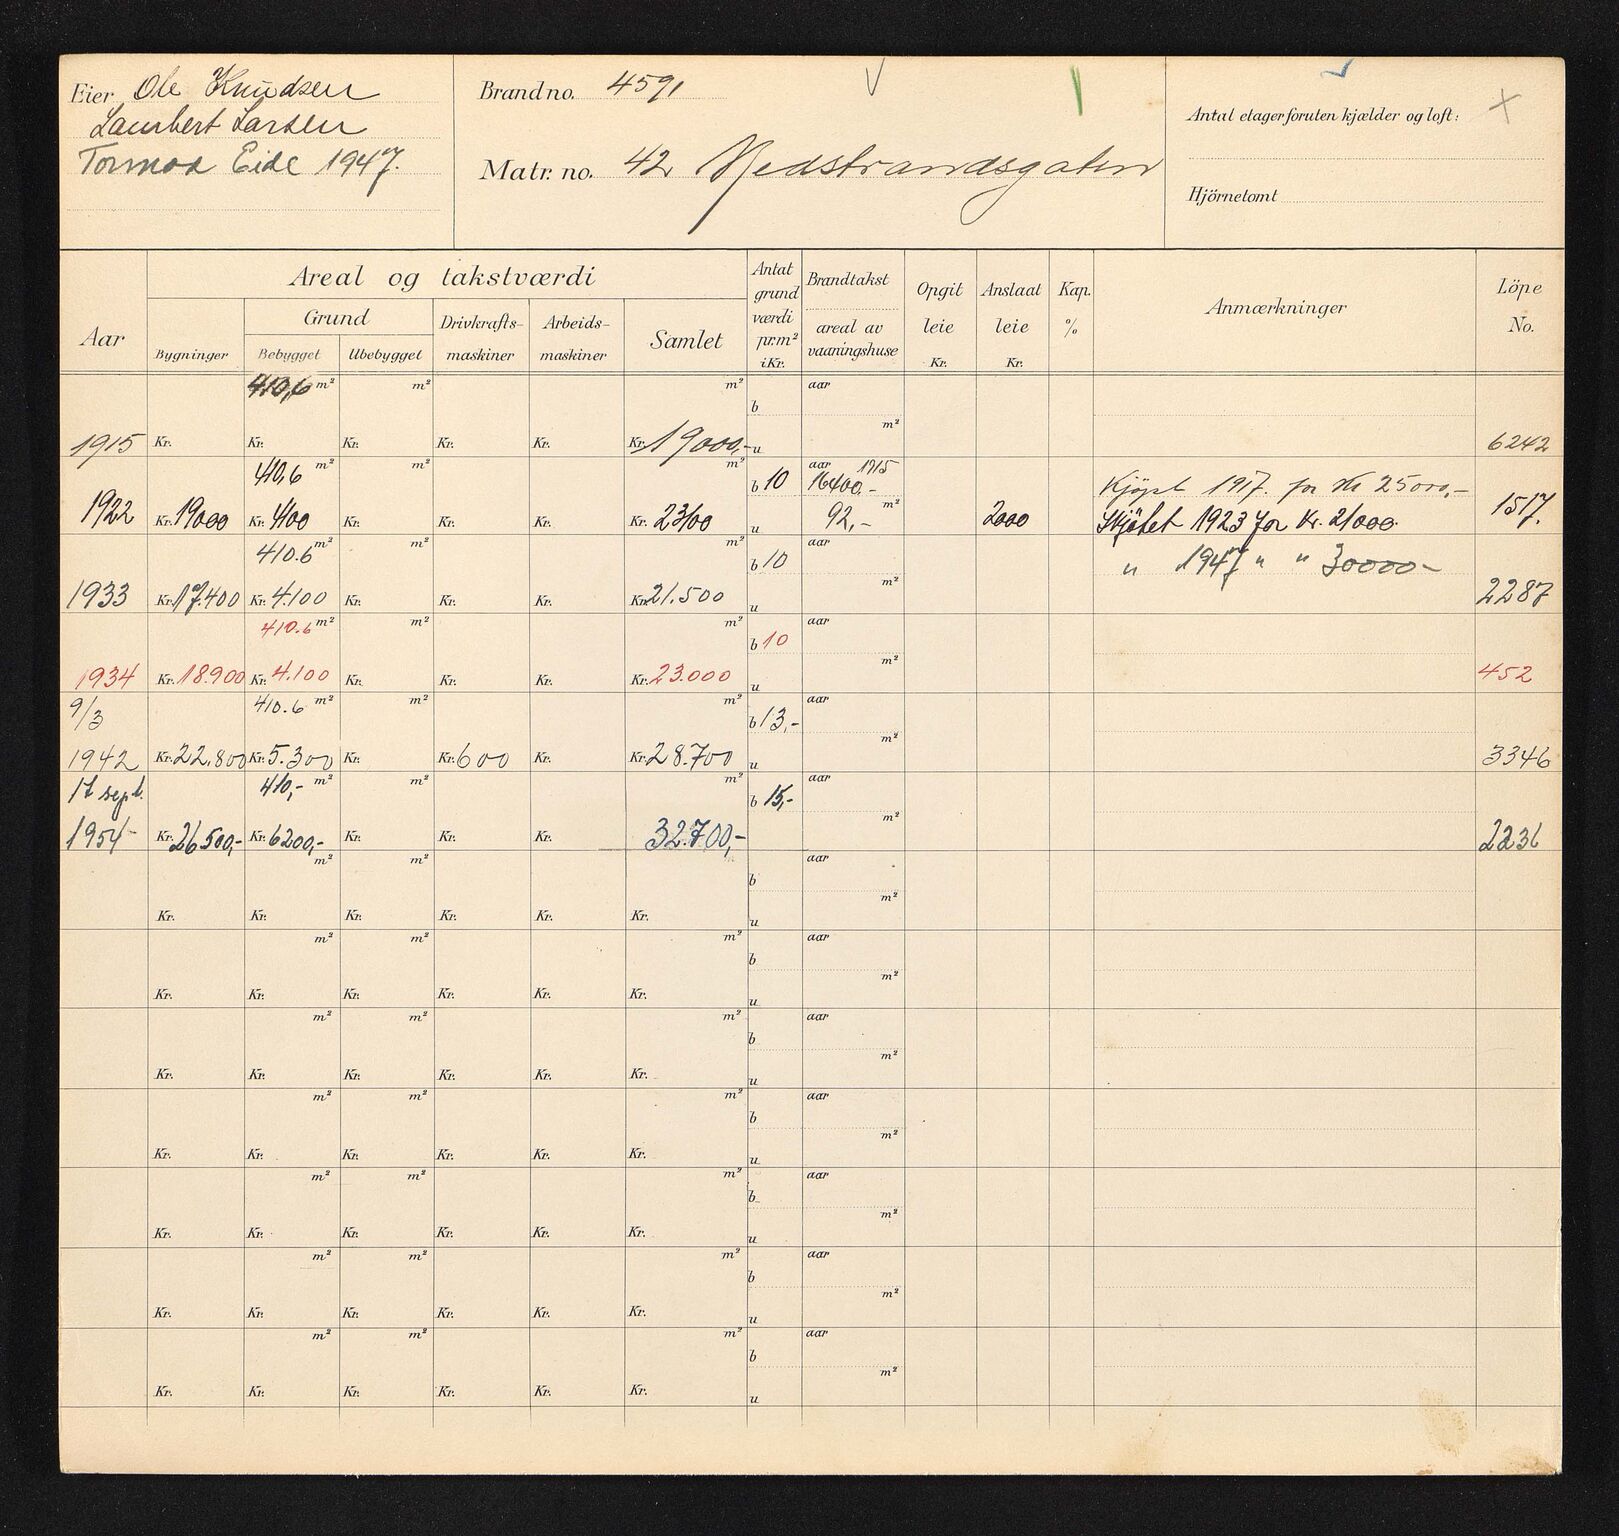 Eier Ole Knudsen
Lambert Larsen
Tormod Eide 1947.
Brand no. 4591
Matr. no. 42 Nedstrandsgaten
Antal etager foruten kjælder og loft:
Hjörnetomt
Aar
Areal og takstværdi
Bygninger
Grund
Bebygget Ubebygget
Drivkrafts-maskiner
Arbeids-maskiner
Samlet
Antat grund værdi pr.m² i Kr.
Brandtakst
areal av vaaningshuse
Opgit leie Kr.
Anslaat leie Kr.
Kap. %
Anmærkninger
Löpe No.
410,6 m² m² m² aar
b
m²
1915 Kr. Kr. Kr. Kr. Kr. Kr. 19000,- u 6242
410,6 m² m² m² b 10 aar 1915
16400,- Kjöpt 1917. for Kr 25000,-
m²
1922 Kr. 19000 Kr. 4100 Kr. Kr. Kr. Kr. 23100 u 92,- 2000 Skjötet 1923 for Kr. 21000. 1517.
410.6 m² m² m² b 10 aar " 1947 " " 30000-
m²
1933 Kr. 17.400 Kr. 4.100 Kr. Kr. Kr. Kr. 21.500 u 2287
410.6 m² m² m² b 10 aar
m²
1934 Kr. 18.900 Kr. 4.100 Kr. Kr. Kr. Kr. 23.000 u 452
9/3 410.6 m² m² m² b 13,- aar
m²
1942 Kr. 22.800 Kr. 5.300 Kr. Kr. 600 Kr. Kr. 28.700 u 3346
17 sept. 410,- m² m² m² b 15,- aar
m²
1954 Kr. 26500,- Kr. 6200,- Kr. Kr. Kr. 32.700,- 2236
m² m² aar
b
m²
Kr. Kr. Kr. Kr. Kr. Kr. u
m² m² m² aar
b
m²
Kr. Kr. Kr. Kr. Kr. Kr. u
m² m² m² aar
b
m²
Kr. Kr. Kr. Kr. Kr. Kr. u
m² m² m² aar
b
m²
Kr. Kr. Kr. Kr. Kr. Kr. u
m² m² m² aar
b
m²
Kr. Kr. Kr. Kr. Kr. Kr. u
m² m² m² aar
b
m²
Kr. Kr. Kr. Kr. Kr. Kr. u
m² m² m² aar
b
m²
Kr. Kr. Kr. Kr. Kr. Kr. u